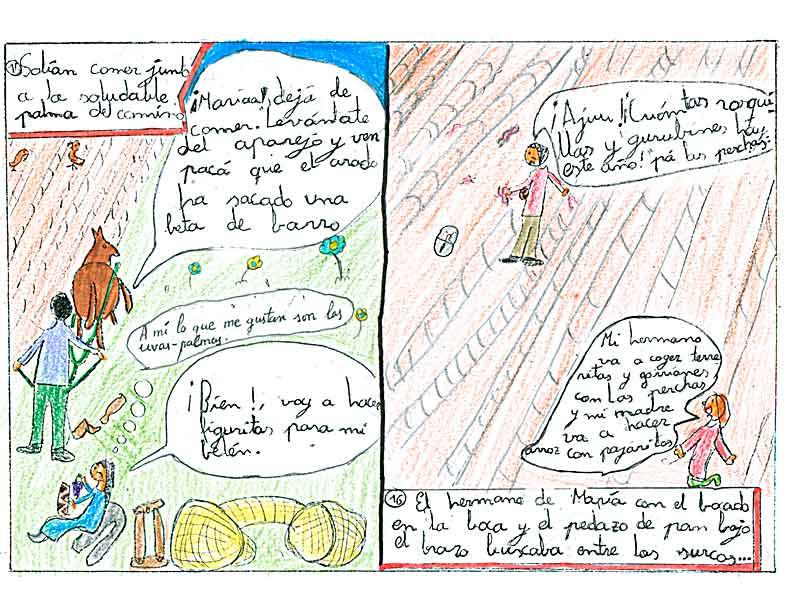 15 Solían comer junto
a la saludable
palma de comino
¡María! dejá de
comer. Levántate
del aparejo y ven
pacá que el arado
ha sacado una
beta de barro
A mí lo que me gustan son las
uvas-palmas.
¡Bien!, voy a hacer
figuritas para mi
belén.
¡Ajuu! ¡Cuántas rosqui-
llas y gurubines hay
este año! pá las perchas.
Mi hermano
va a coger terre-
ritas y gorriones
con las perchas
y mi madre
va a hacer
arroz con pajaritos
16 El hermano de María con el bocado
en la boca y el pedazo de pan bajo
el brazo buscaba entre los surcos...